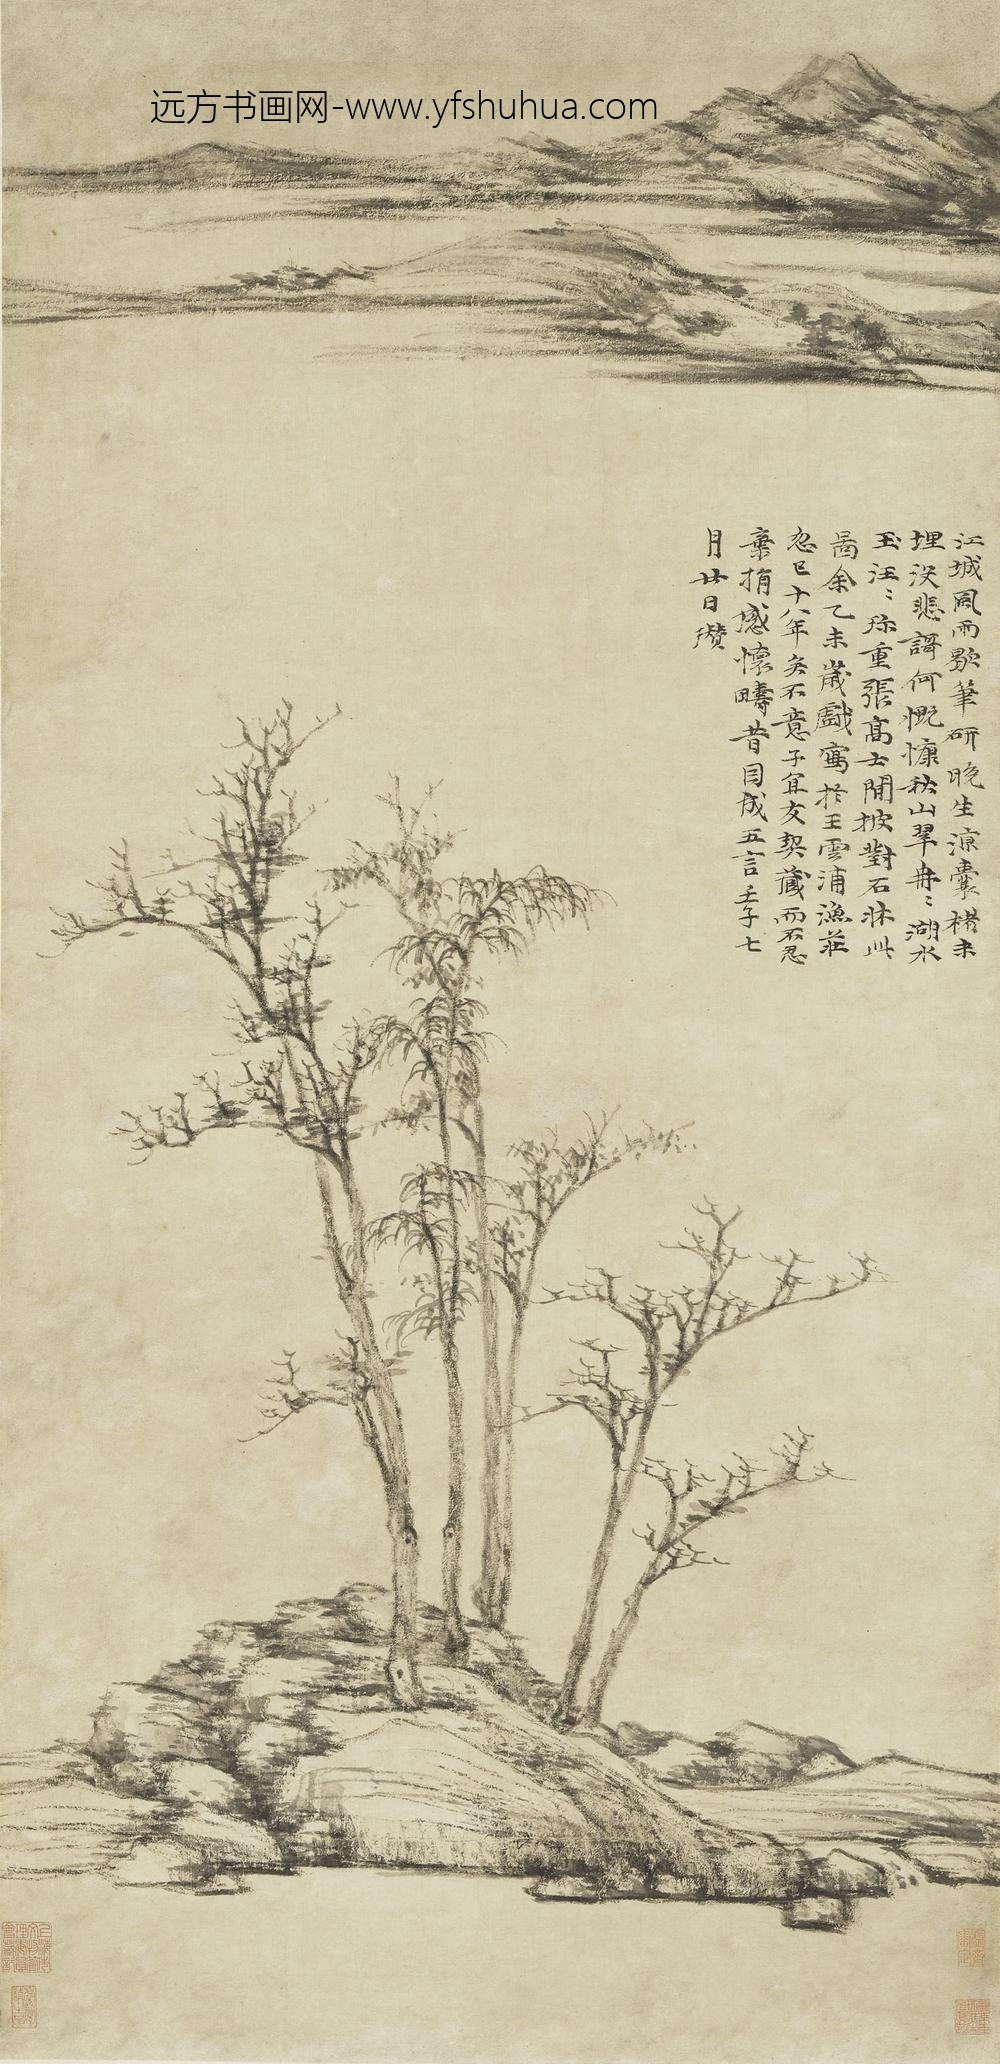 远方书画网-www.yfshuhua.com
江城風雨歇筆研晚生涼囊楮未
埋沒悲謌何慨慷秋山翠冉〻湖水
玉汪〻珎重張髙士閒披對石牀此
啚余乙未歲戲寫於王雲浦漁莊
忽已十八年矣不意子宜友契藏而不忍
棄捐感懷疇昔因成五言壬子七
月廿日瓚